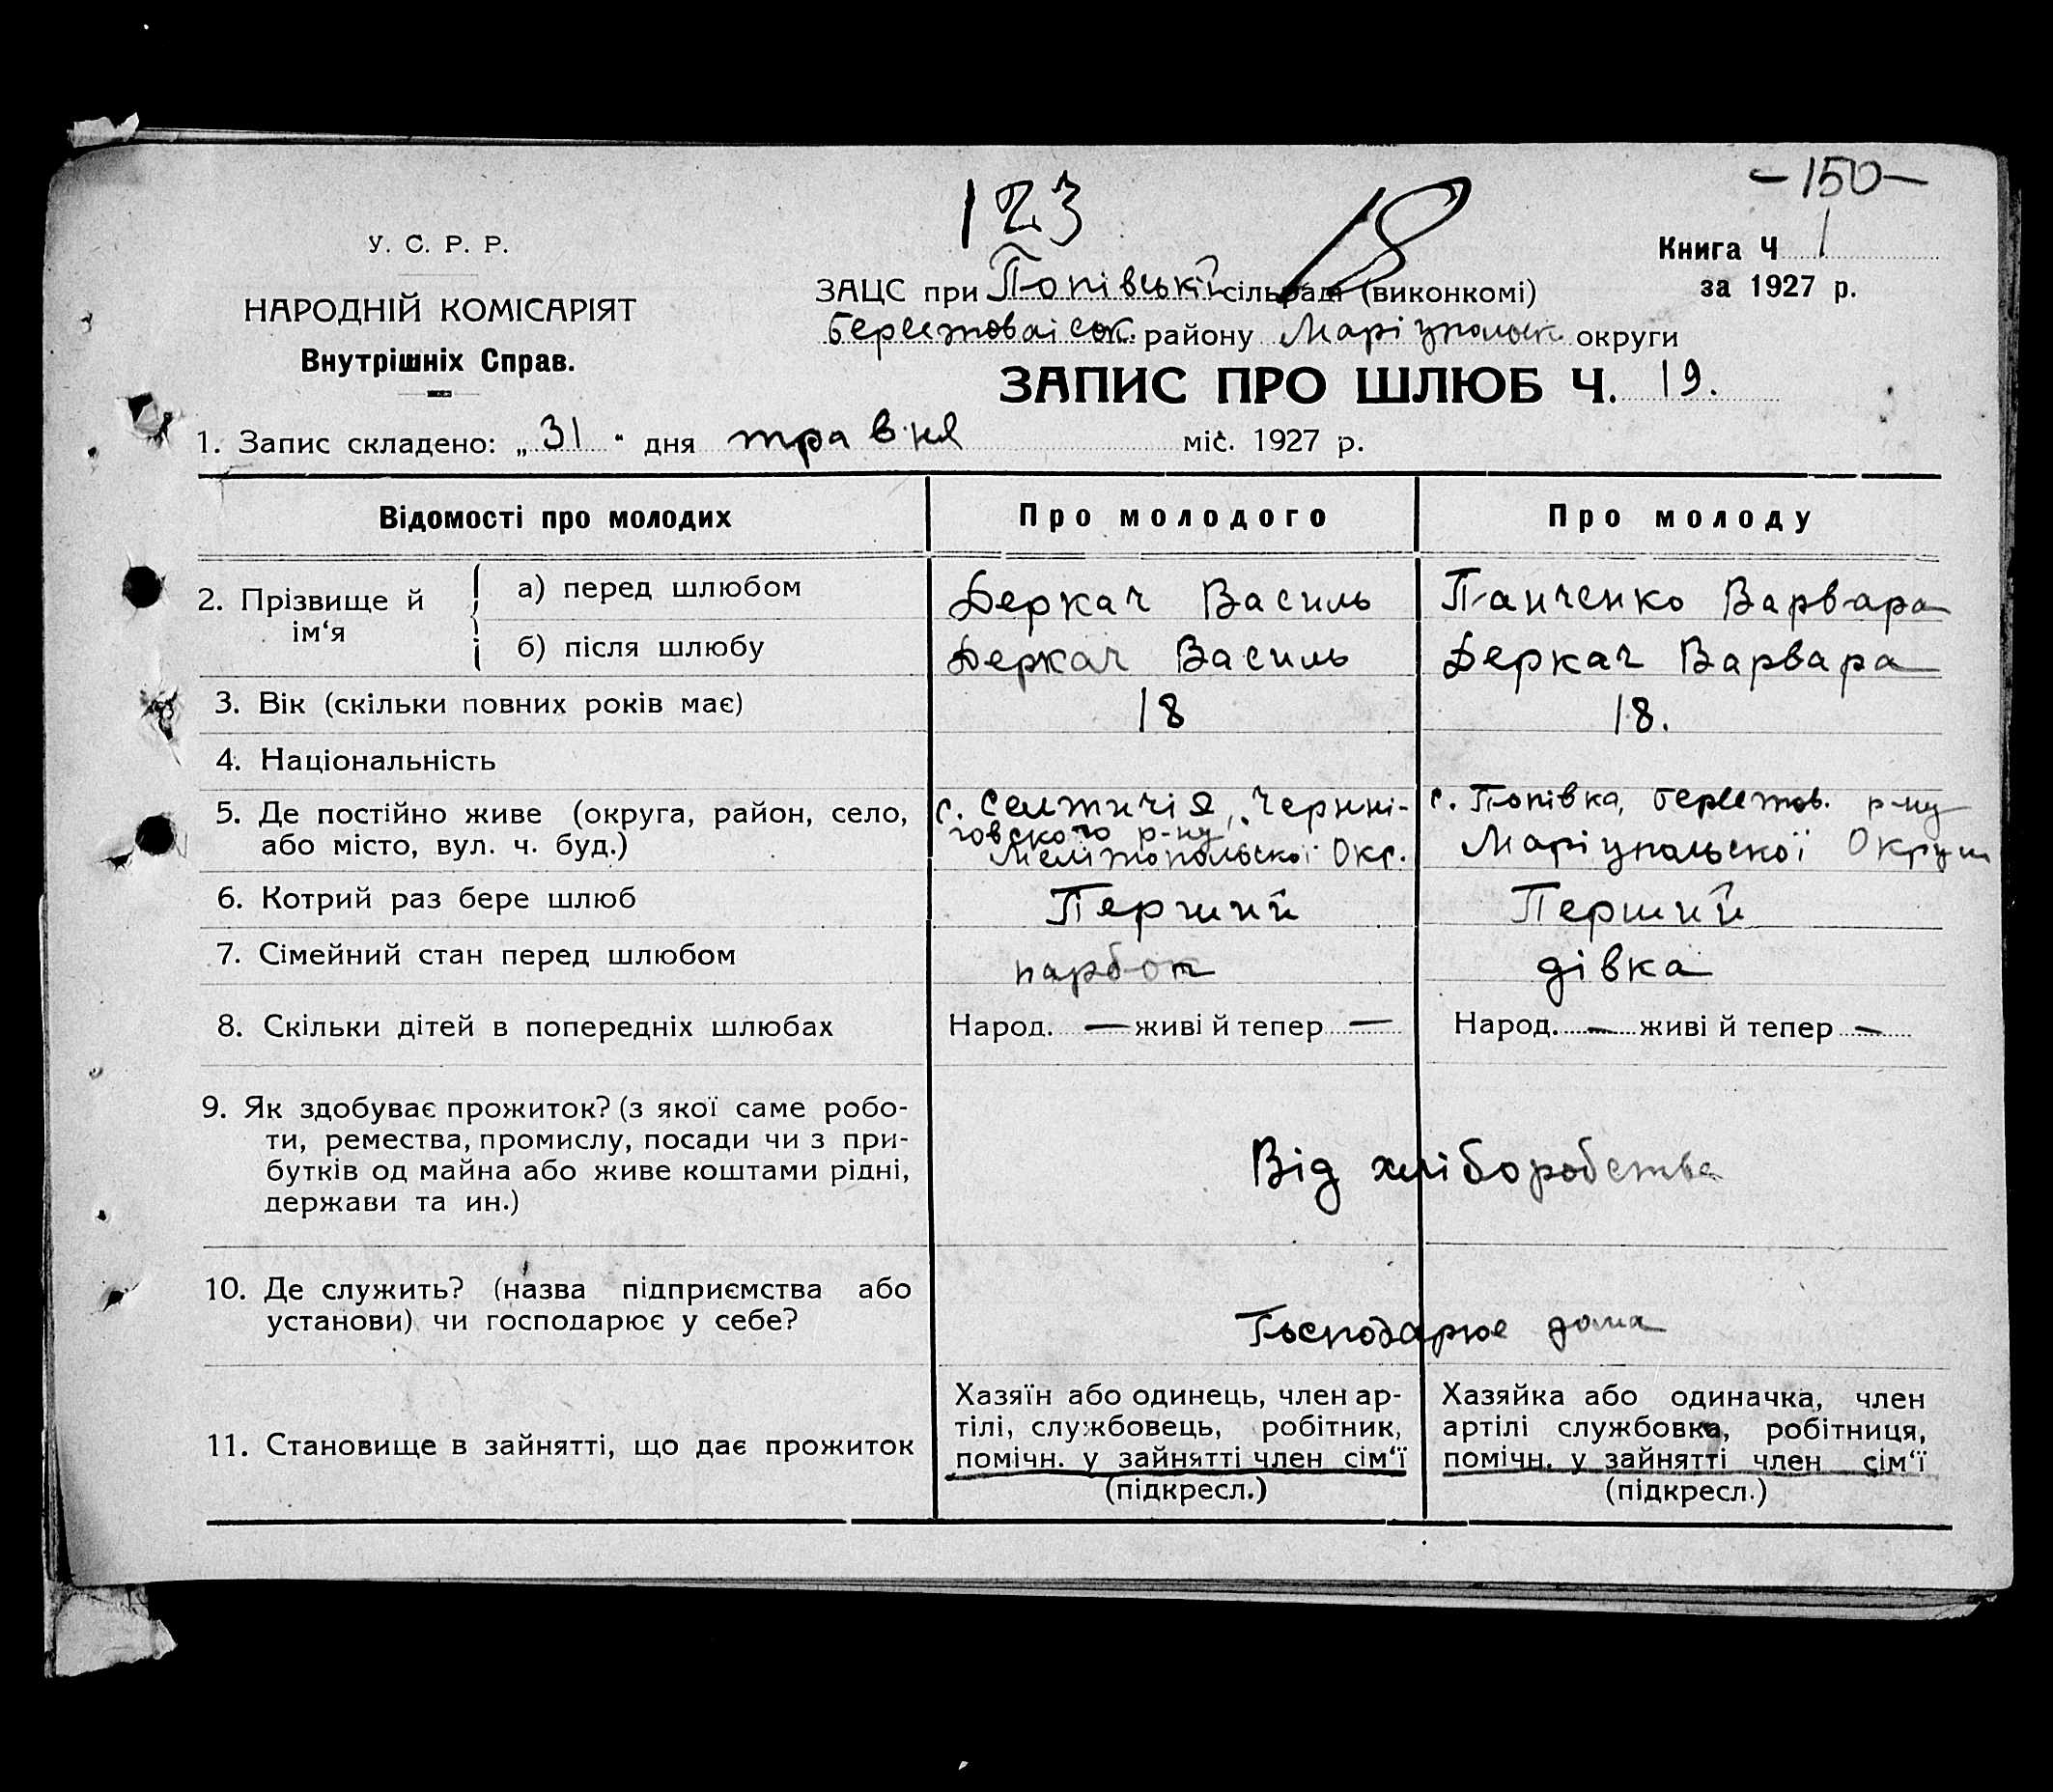 -150-
123
18
У. С. Р. Р.
НАРОДНІЙ КОМІСАРІЯТ
Внутрішніх Справ.
Книга Ч 1
за 1927 р.
ЗАЦС при Попівській сільраді (виконкомі)
району Маріупольск округи
ЗАПИС ПРО ШЛЮБ Ч. 19.
1. Запис складено: „ 31 " дня травня міс. 1927 р.
Відомості про молодих Про молодого Про молоду
2. Прізвище й ім‘я
а) перед шлюбом Деркач Василь Панченко Варвара
б) після шлюбу Деркач Василь Деркач Варвара
3. Вік (скільки повних років має) 18 18.
4. Національність
5. Де постійно живе (округа, район, село,
або місто, вул. ч. буд.)
с. Чернні-
говського р-ну
Мелітопольскої Окр.
с. Попівка, Берестов. р-ну
Маріупольскої Округи
6. Котрий раз бере шлюб Перший Перший
7. Сімейний стан перед шлюбом парбок дівка
8. Скільки дітей в попередніх шлюбах Народ. — живі й тепер — Народ. — живі й тепер —
9. Як здобуває прожиток? (з якої саме робо-
ти, ремества, промислу, посади чи з при-
бутків од майна або живе коштами рідні,
держави та ин.)
Від хліборобства
10. Де служить? (назва підприємства або
установи) чи господарює у себе?
Господарює дома
11. Становище в зайнятті, що дає прожиток
Хазяїн або одинець, член ар-
тілі, службовець, робітник,
помічн. у зайнятті член сім‘ї
(підкресл.)
Хазяйка або одиначка, член
артілі службовка, робітниця,
помічн. у зайнятті член сім‘ї
(підкресл.)